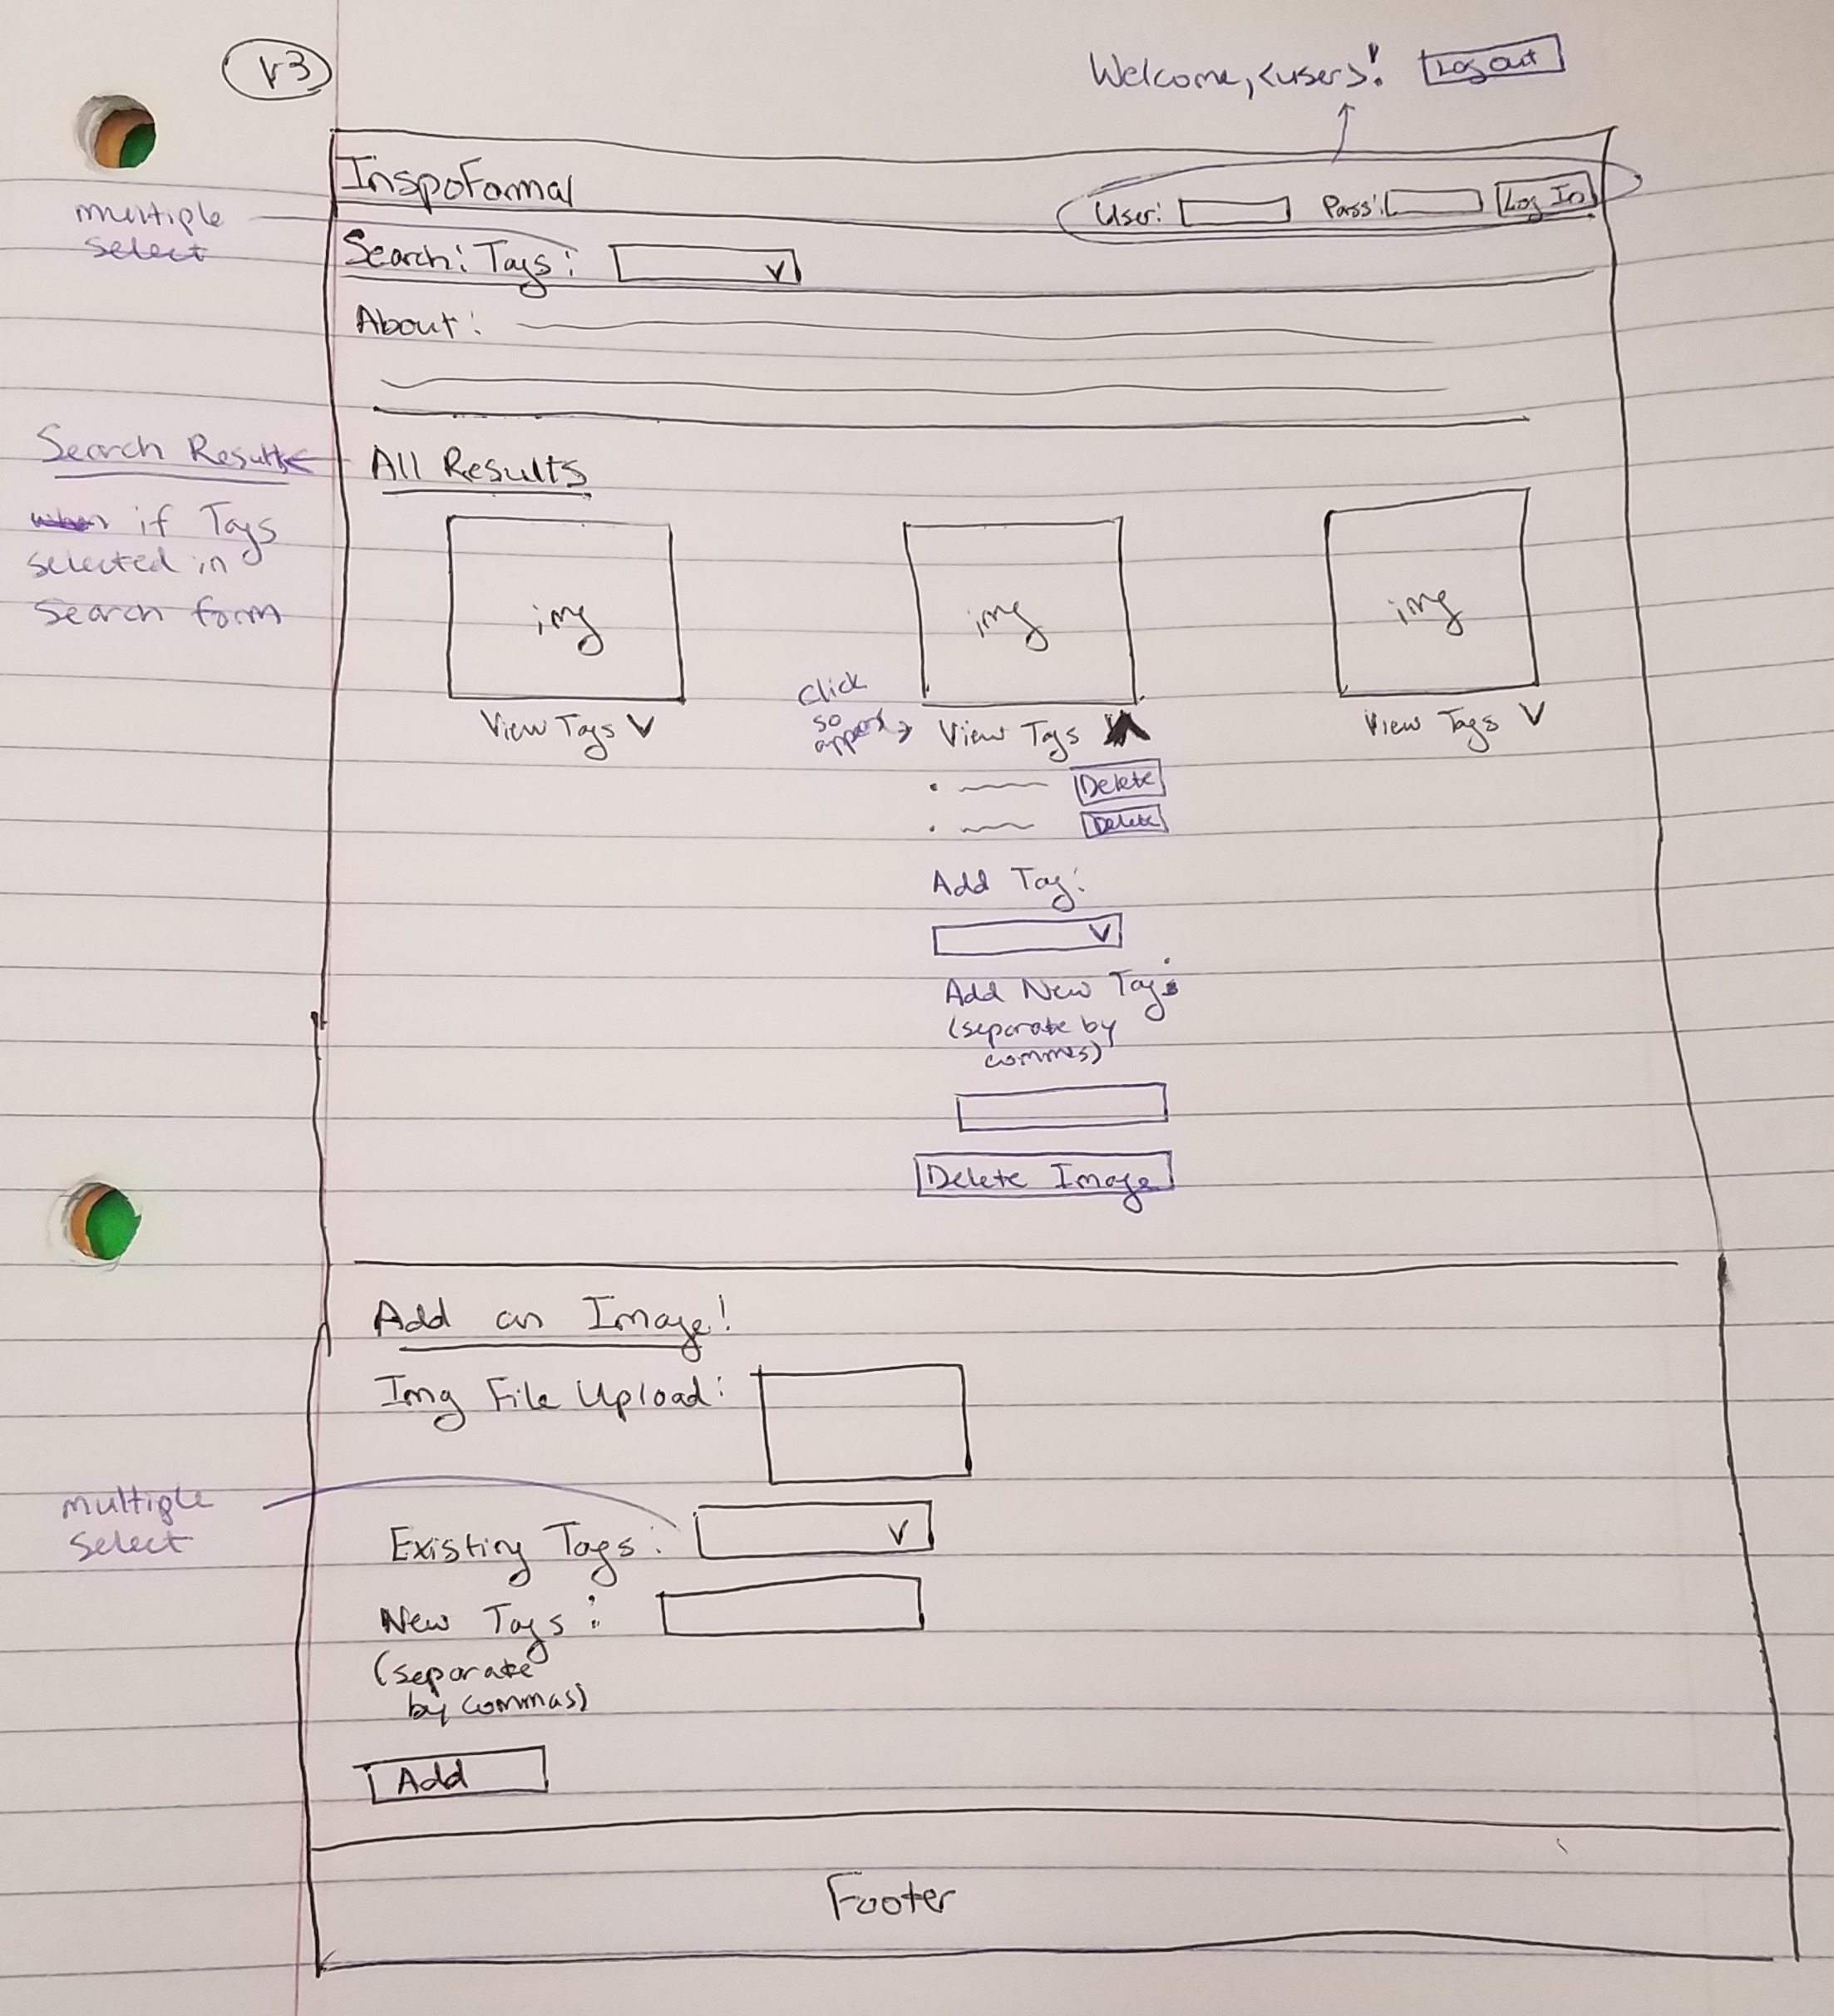 V3
Welcome, <user>! Log out
InspoFormal
User: Pass: Log In
multiple
select
Search: Tags: V
About:
Search Results
All Results
if Tags
selected in
Search form
img img img
View Tags V
Click
so
appears
View Tags
View Tags V
Delete
Delete
Add Tag:
V
Add New Tags
(separate by
commas)
Delete Image
Add an Image!
Img File Upload:
multiple
select
Existing Tags: V
New Tags:
(separate
by commas)
Add
Footer